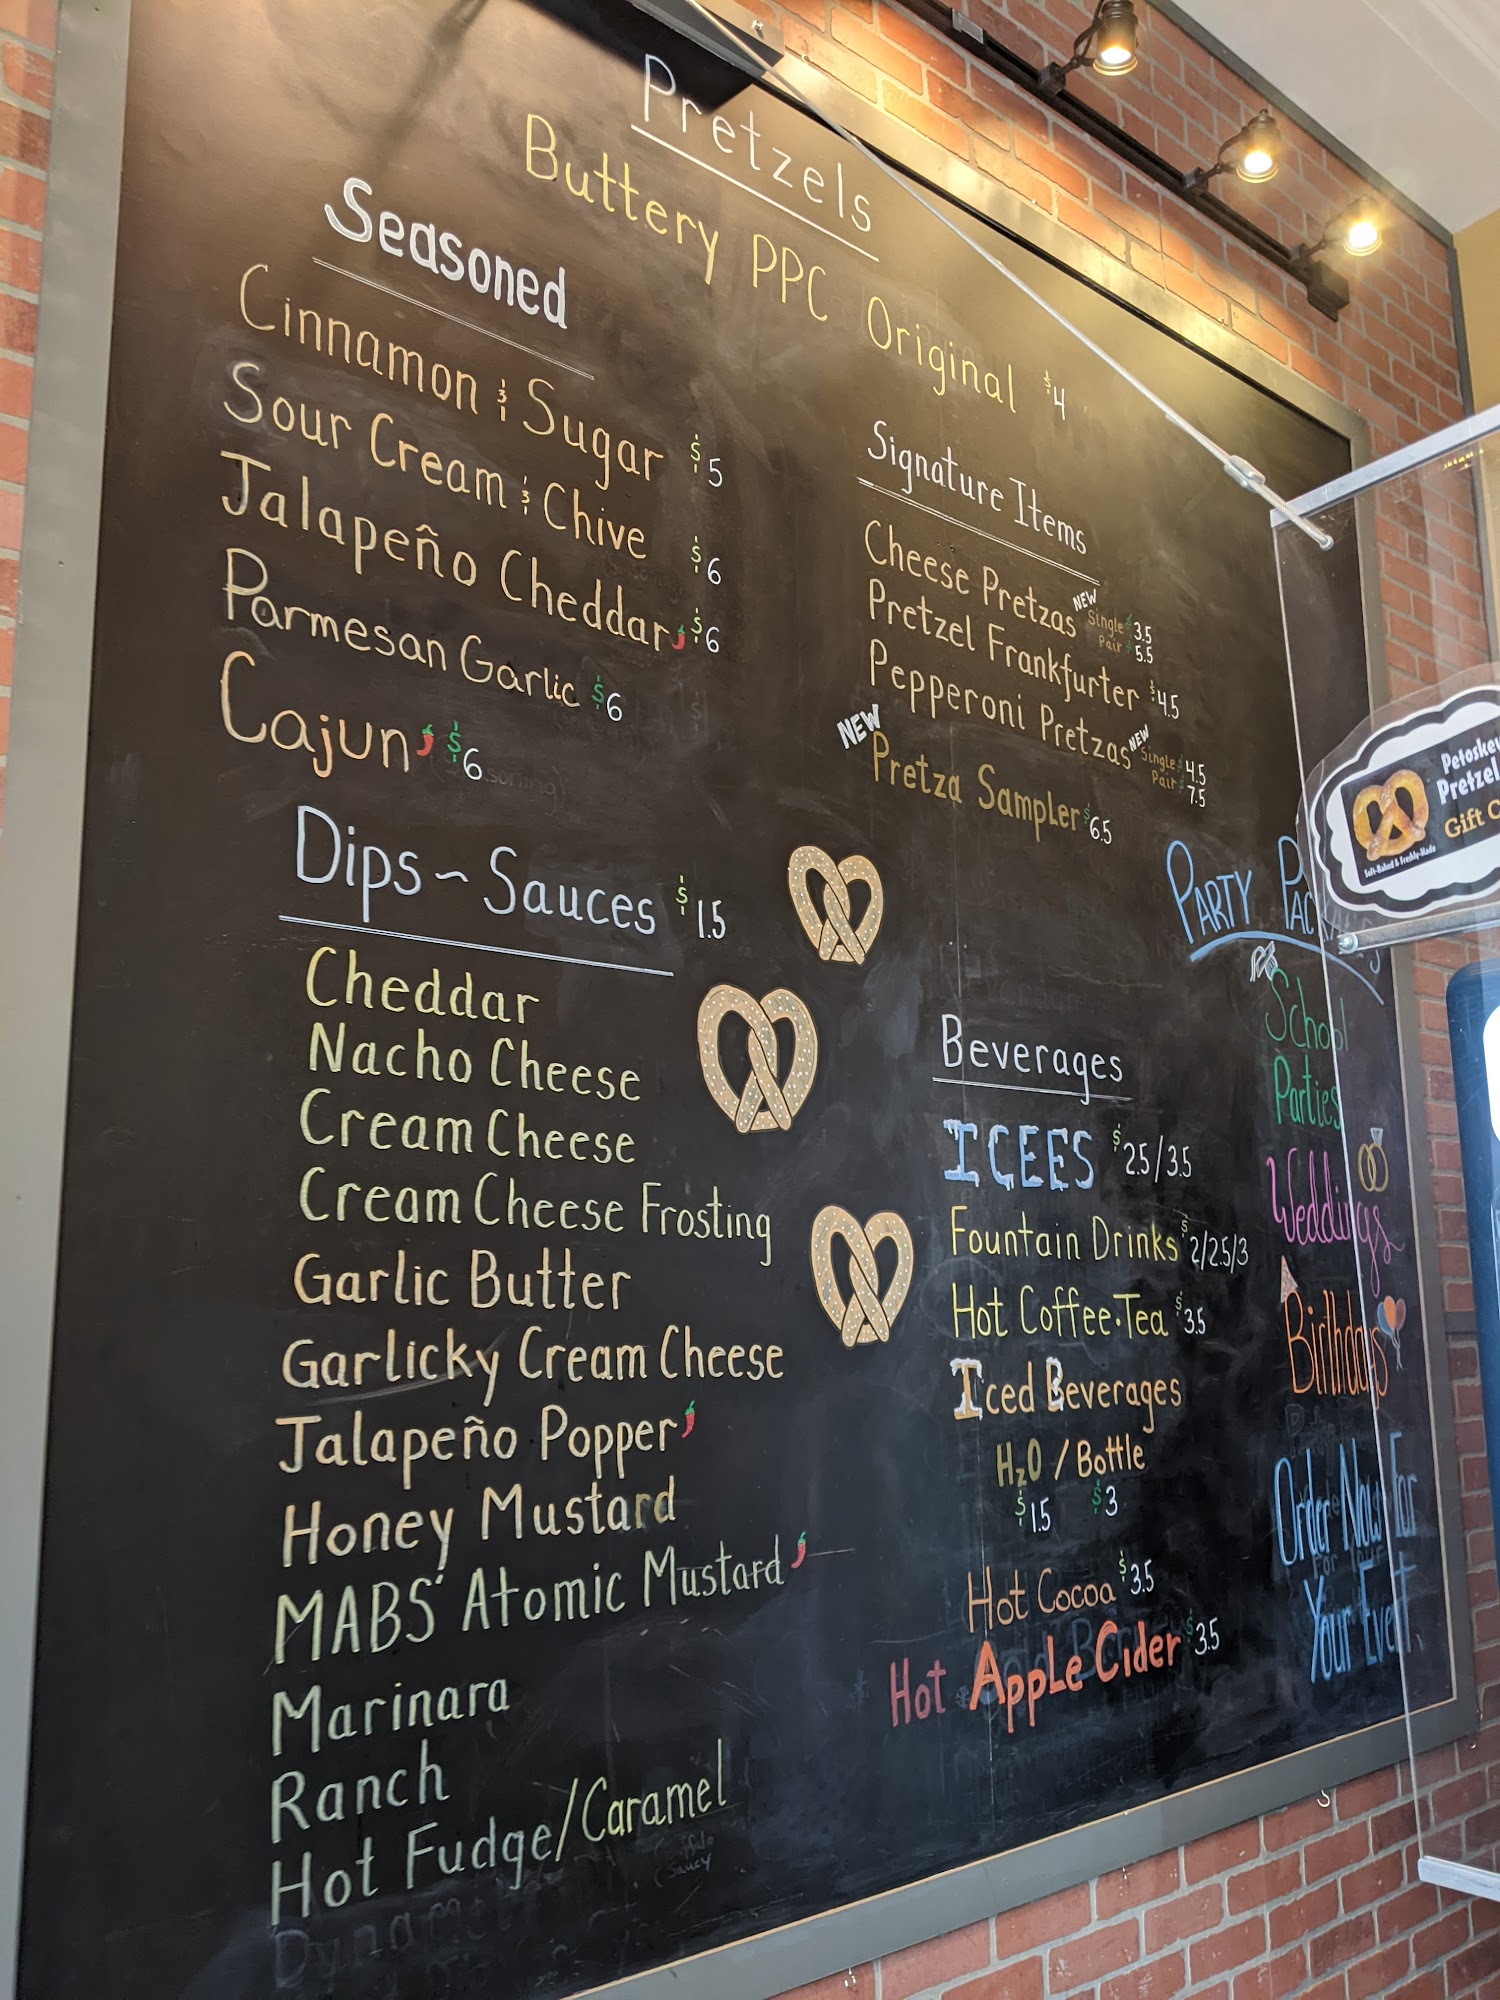 Pretzels
Buttery PPC Original $4
Seasoned
Cinnamon & Sugar $5
Sour Cream & Chive $6
Jalapeño Cheddar $6
Parmesan Garlic $6
Cajun $6
Signature Items
Cheese Pretzas NEW Single $3.5
Pair $5.5
Pretzel Frankfurter $4.5
Pepperoni Pretzas NEW Single $4.5
Pair $7.5
NEW Pretza Sampler $6.5
Dips ~ Sauces $1.5
Cheddar
Nacho Cheese
Cream Cheese
Cream Cheese Frosting
Garlic Butter
Garlicky Cream Cheese
Jalapeño Popper
Honey Mustard
MABS' Atomic Mustard
Marinara
Ranch
Hot Fudge/Caramel
Beverages
ICEES $2.5/3.5
Fountain Drinks $2/2.5/3
Hot Coffee·Tea $3.5
Iced Beverages
H2O / Bottle
$1.5 $3
Hot Cocoa $3.5
Hot Apple Cider $3.5
Party
School
Parties
Weddings
Birthdays
Order Now For
Your Event
Petoskey
Pretzel
Gift
Soft-Baked & Freshly-Made